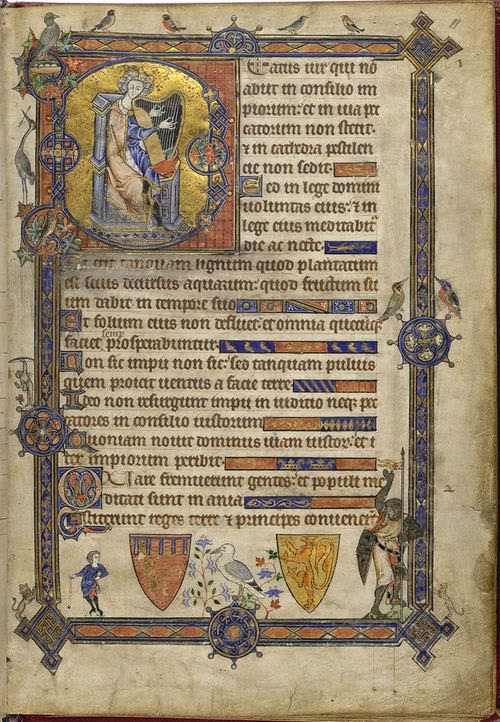 11
1
Beatus uir qui nō
abiit in consilio im
piorum: et in uia pec
catorum non stetit:
⁊ in cathedra pestilen
cie non sedit.
Sed in lege domini
uoluntas eius: ⁊ in
lege eius meditabit᷑
die ac nocte.
Et erit tanquam lignum quod plantatum
est secus decursus aquarum: quod fructum su
um dabit in tempore suo
Et folium eius non defluet: et omnia quecūqꝫ
semp
faciet prosperabuntur.
Non sic impii non sic: sed tanquam puluis
quem proicit uentus a facie terre
Ideo non resurgunt impii in iudicio neqꝫ pec
catores in consilio iustorum
Quoniam nouit dominus uiam iustoꝝ: et i
ter impiorum peribit.
Quare fremuerunt gentes: et populi me
2
ditati sunt in ania
Astiterunt reges terre ⁊ principes conuener̄t